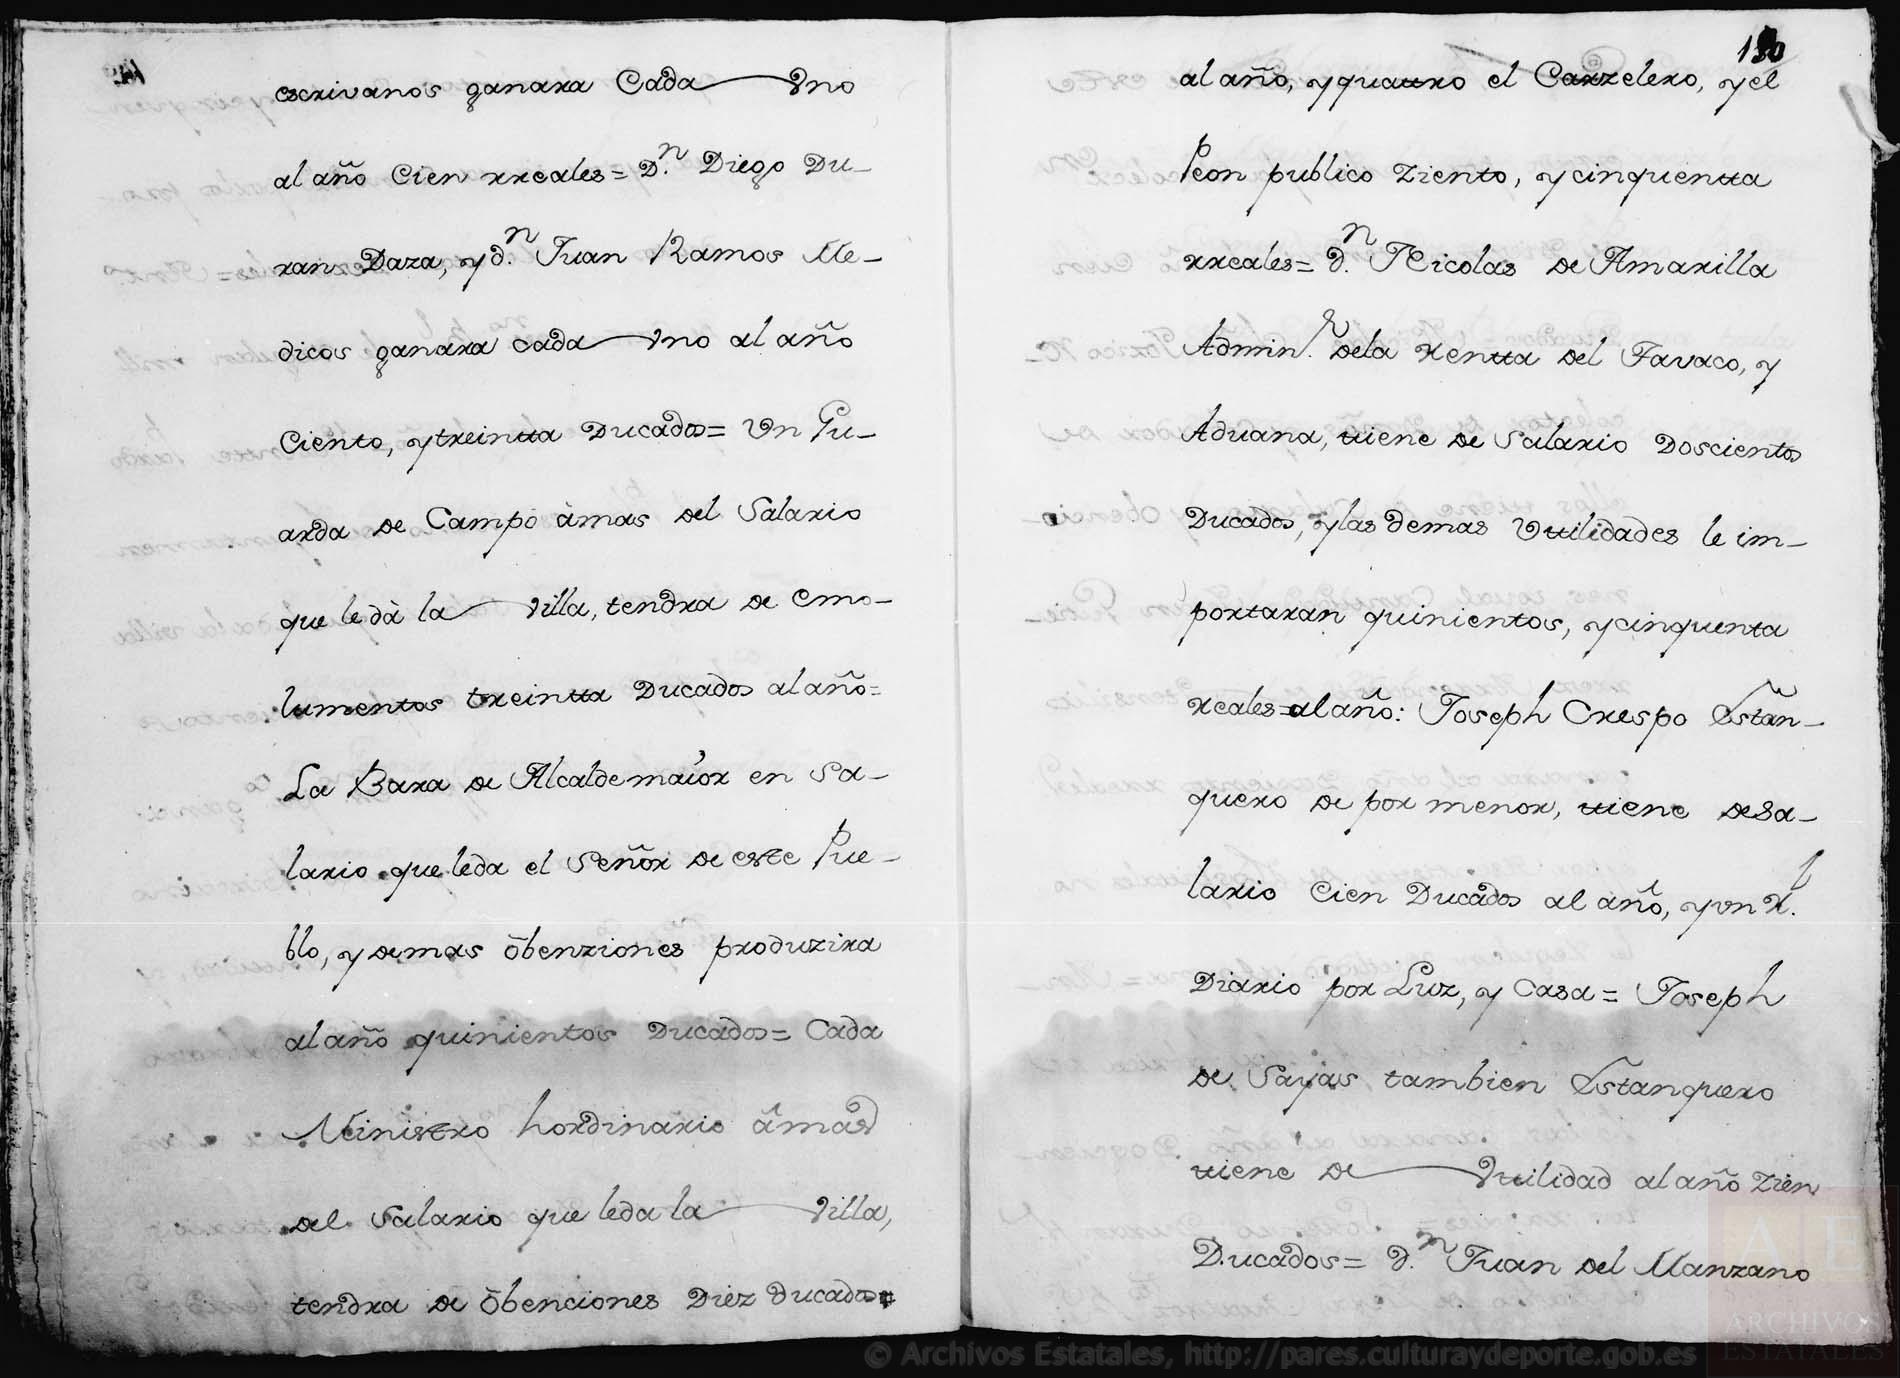 escrivanos ganara Cada Vno
al año Cien rreales= D.n Diego Du-
ran Daza, y d.n Juan Ramos Me-
dicos ganara cada Vno al año
Ciento, y treintta Ducados= Vn Gu-
arda de Campo àmas del Salario
que le dà la Villa, tendra de emo-
lumentos treintta Ducados al año=
La Bara de Alcalde maior en Sa-
lario que leda el Señor de este Pue-
blo, y demas óbenziones produzira
al año quinientos Ducados= Cada
Ministro hordinario âmas
del Salario que leda la Villa,
tendra de óbenciones Diez ducados=
130
al año, y quattro el Carzelero, y el
Peon publico ziento, y cinquentta
rreales= d.n Nicolas de Amarilla
Admin.r dela rentta del Tavaco, y
Aduana, ttiene de Salario Doscientos
Ducados, y las demas Vttilidades le im-
portaran quinientos, y cinquenta
reales=al año: Joseph Crespo Estan-
quero de por menor, ttiene desa-
lario Cien Ducados al año, y vn R.l
Diario por Luz, y Casa= Joseph
de Sayas tambien Estanquero
ttiene de Vttilidad al año zien
Ducados= d.n Juan del Manzano
© Archivos Estatales, http://pares.culturaydeporte.gob.es
A E
ARCHIVOS
ESTATALES